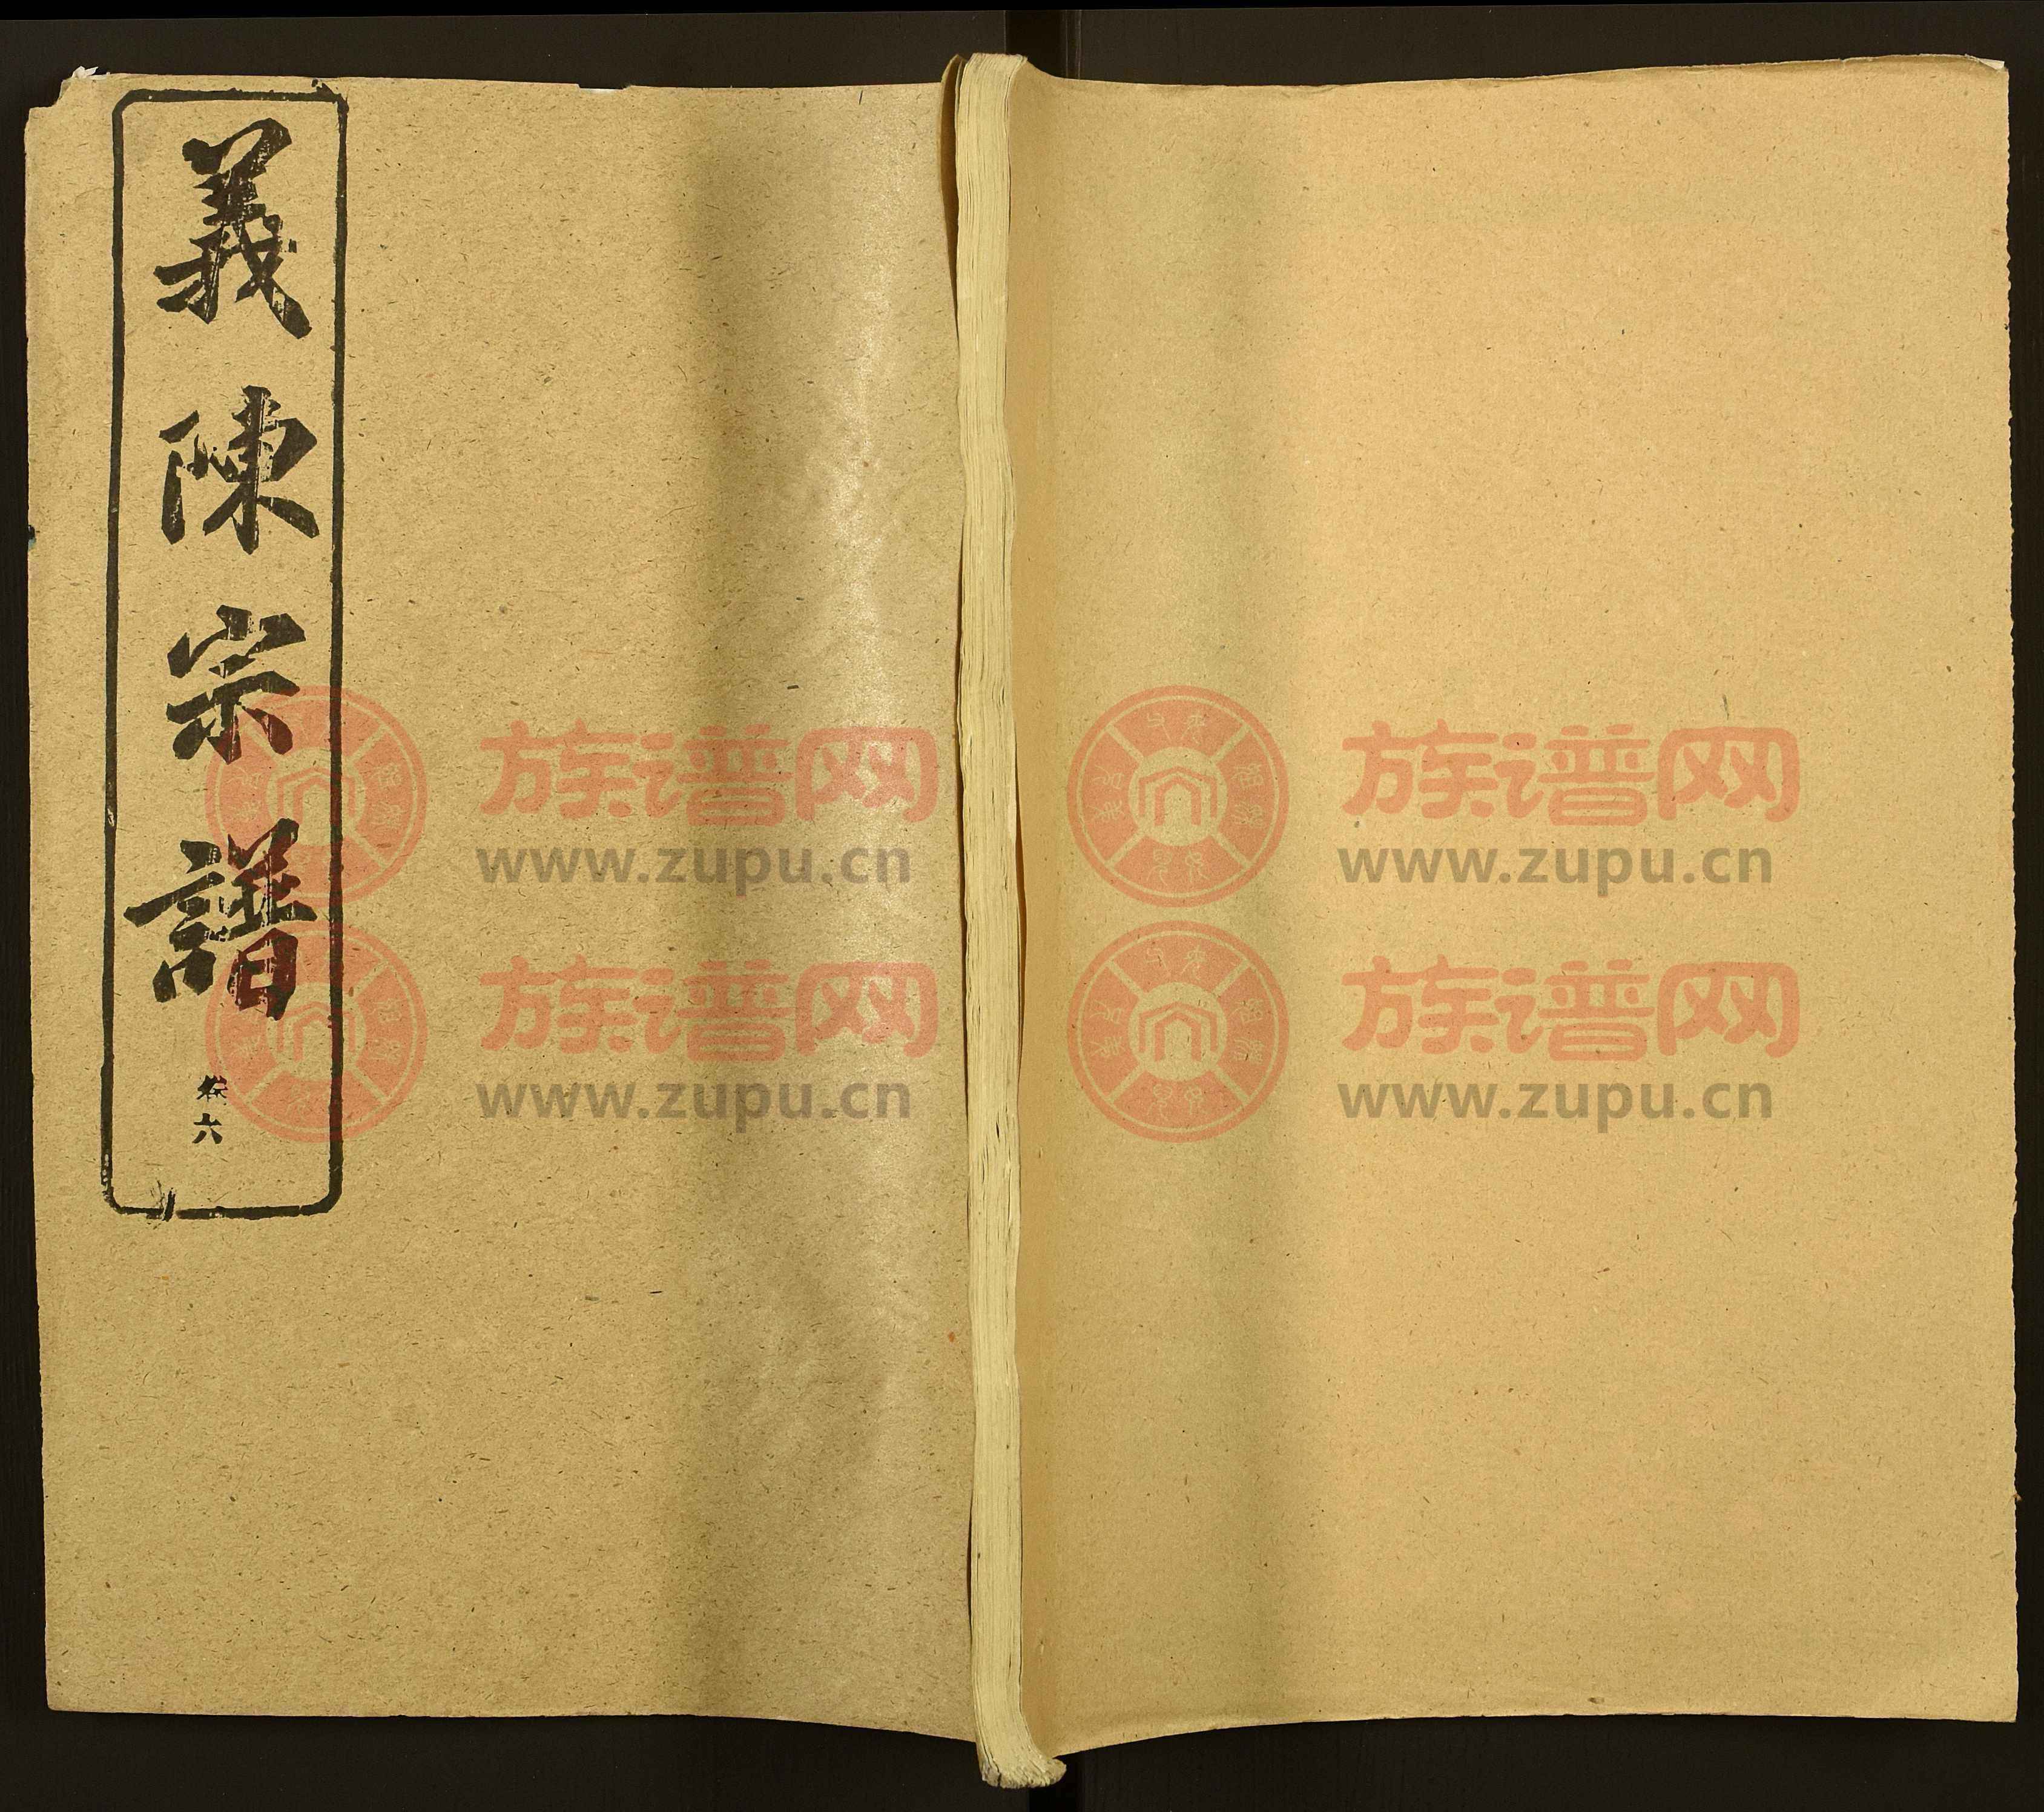 義陳宗譜
卷六
族谱网
www.zupu.cn
族谱网
www.zupu.cn
族谱网
www.zupu.cn
族谱网
www.zupu.cn